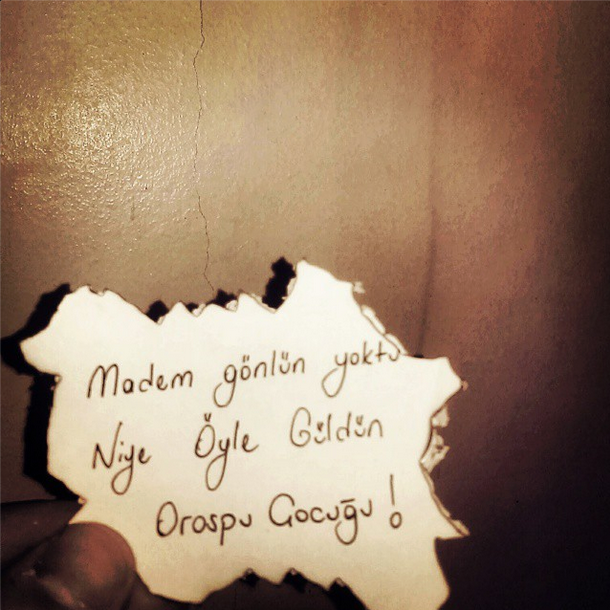 Madem gönlün yoktu
Niye Öyle Güldün
Orospu Çocuğu!